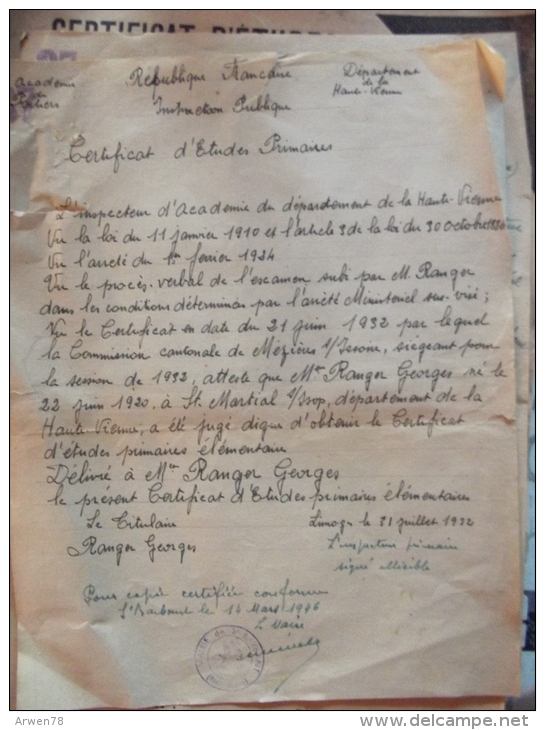 CERTIFICAT D'ÉTUDES
Académie
de
Poitiers
République Française
Instruction Publique
Département
de la
Haute-Vienne
Certificat d'Etudes Primaires
L'inspecteur d'Académie du département de la Haute Vienne
Vu la loi du 11 janvier 1910 et l'article 3 de la loi du 30 Octobre 1886
Vu l'arrêté du 1er février 1924
Vu le procès-verbal de l'examen subi par M. Ranger
dans les conditions déterminées par l'arrêté Ministériel sus-visé ;
Vu le Certificat en date du 21 juin 1932 par lequel
la Commission cantonale de Mézières s/Issoire, siégeant pour
la session de 1932, atteste que Mr Ranger Georges né le
22 juin 1920 à St. Martial s/Isop, département de la
Haute-Vienne, a été jugé digne d'obtenir le Certificat
d'études primaires élémentaire
Délivré à Mr Ranger Georges
le présent Certificat d'Etudes primaires élémentaires
Le Titulaire
Ranger Georges
Limoges le 31 juillet 1932
L'inspecteur primaire
signé illisible
Pour copie certifiée conforme
St Barbant le 14 Mars 1946
Le Maire
Arwen78
www.delcampe.net